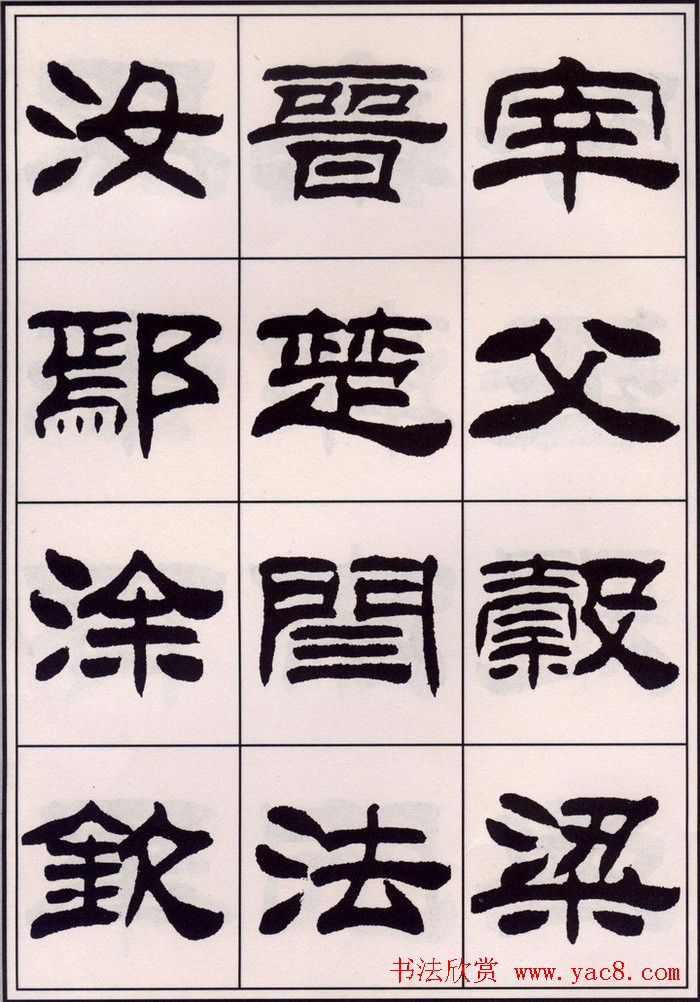 宰父穀梁
晉楚閆法
汝鄢涂欽
书法欣赏 www.yac8.com